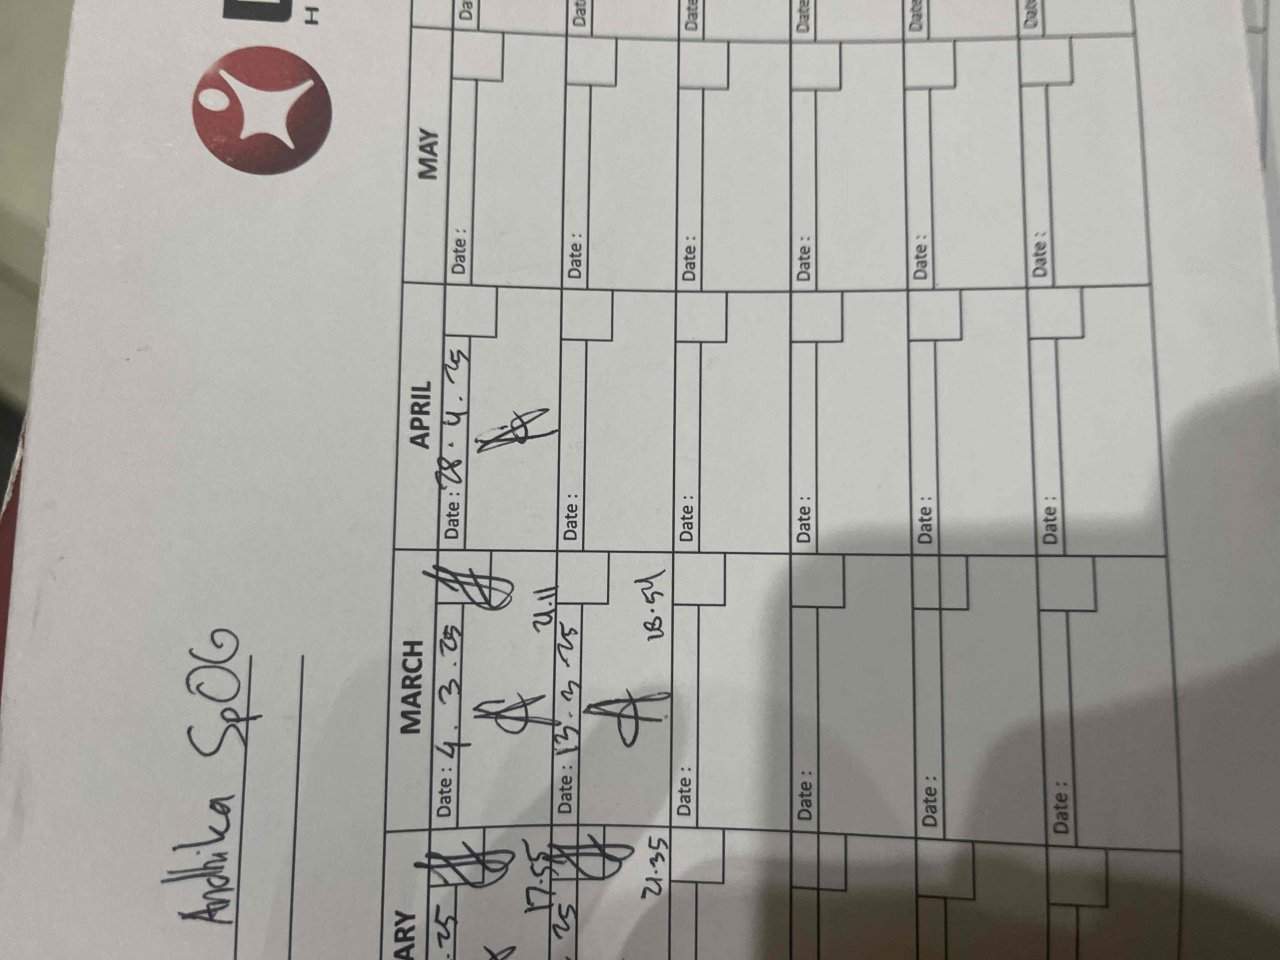 H
Andhika SpOG
ARY MARCH APRIL MAY
.25 Date : 4 . 3 . 25 Date : 28 . 4 . 25 Date : Da
17.55 21.11
. 25 Date : 13 . 3 . 25 Date : Date : Dat
21.35 18.54
Date : Date : Date : Date
Date : Date : Date : Date
Date : Date : Date : Date
Date : Date : Date : Date